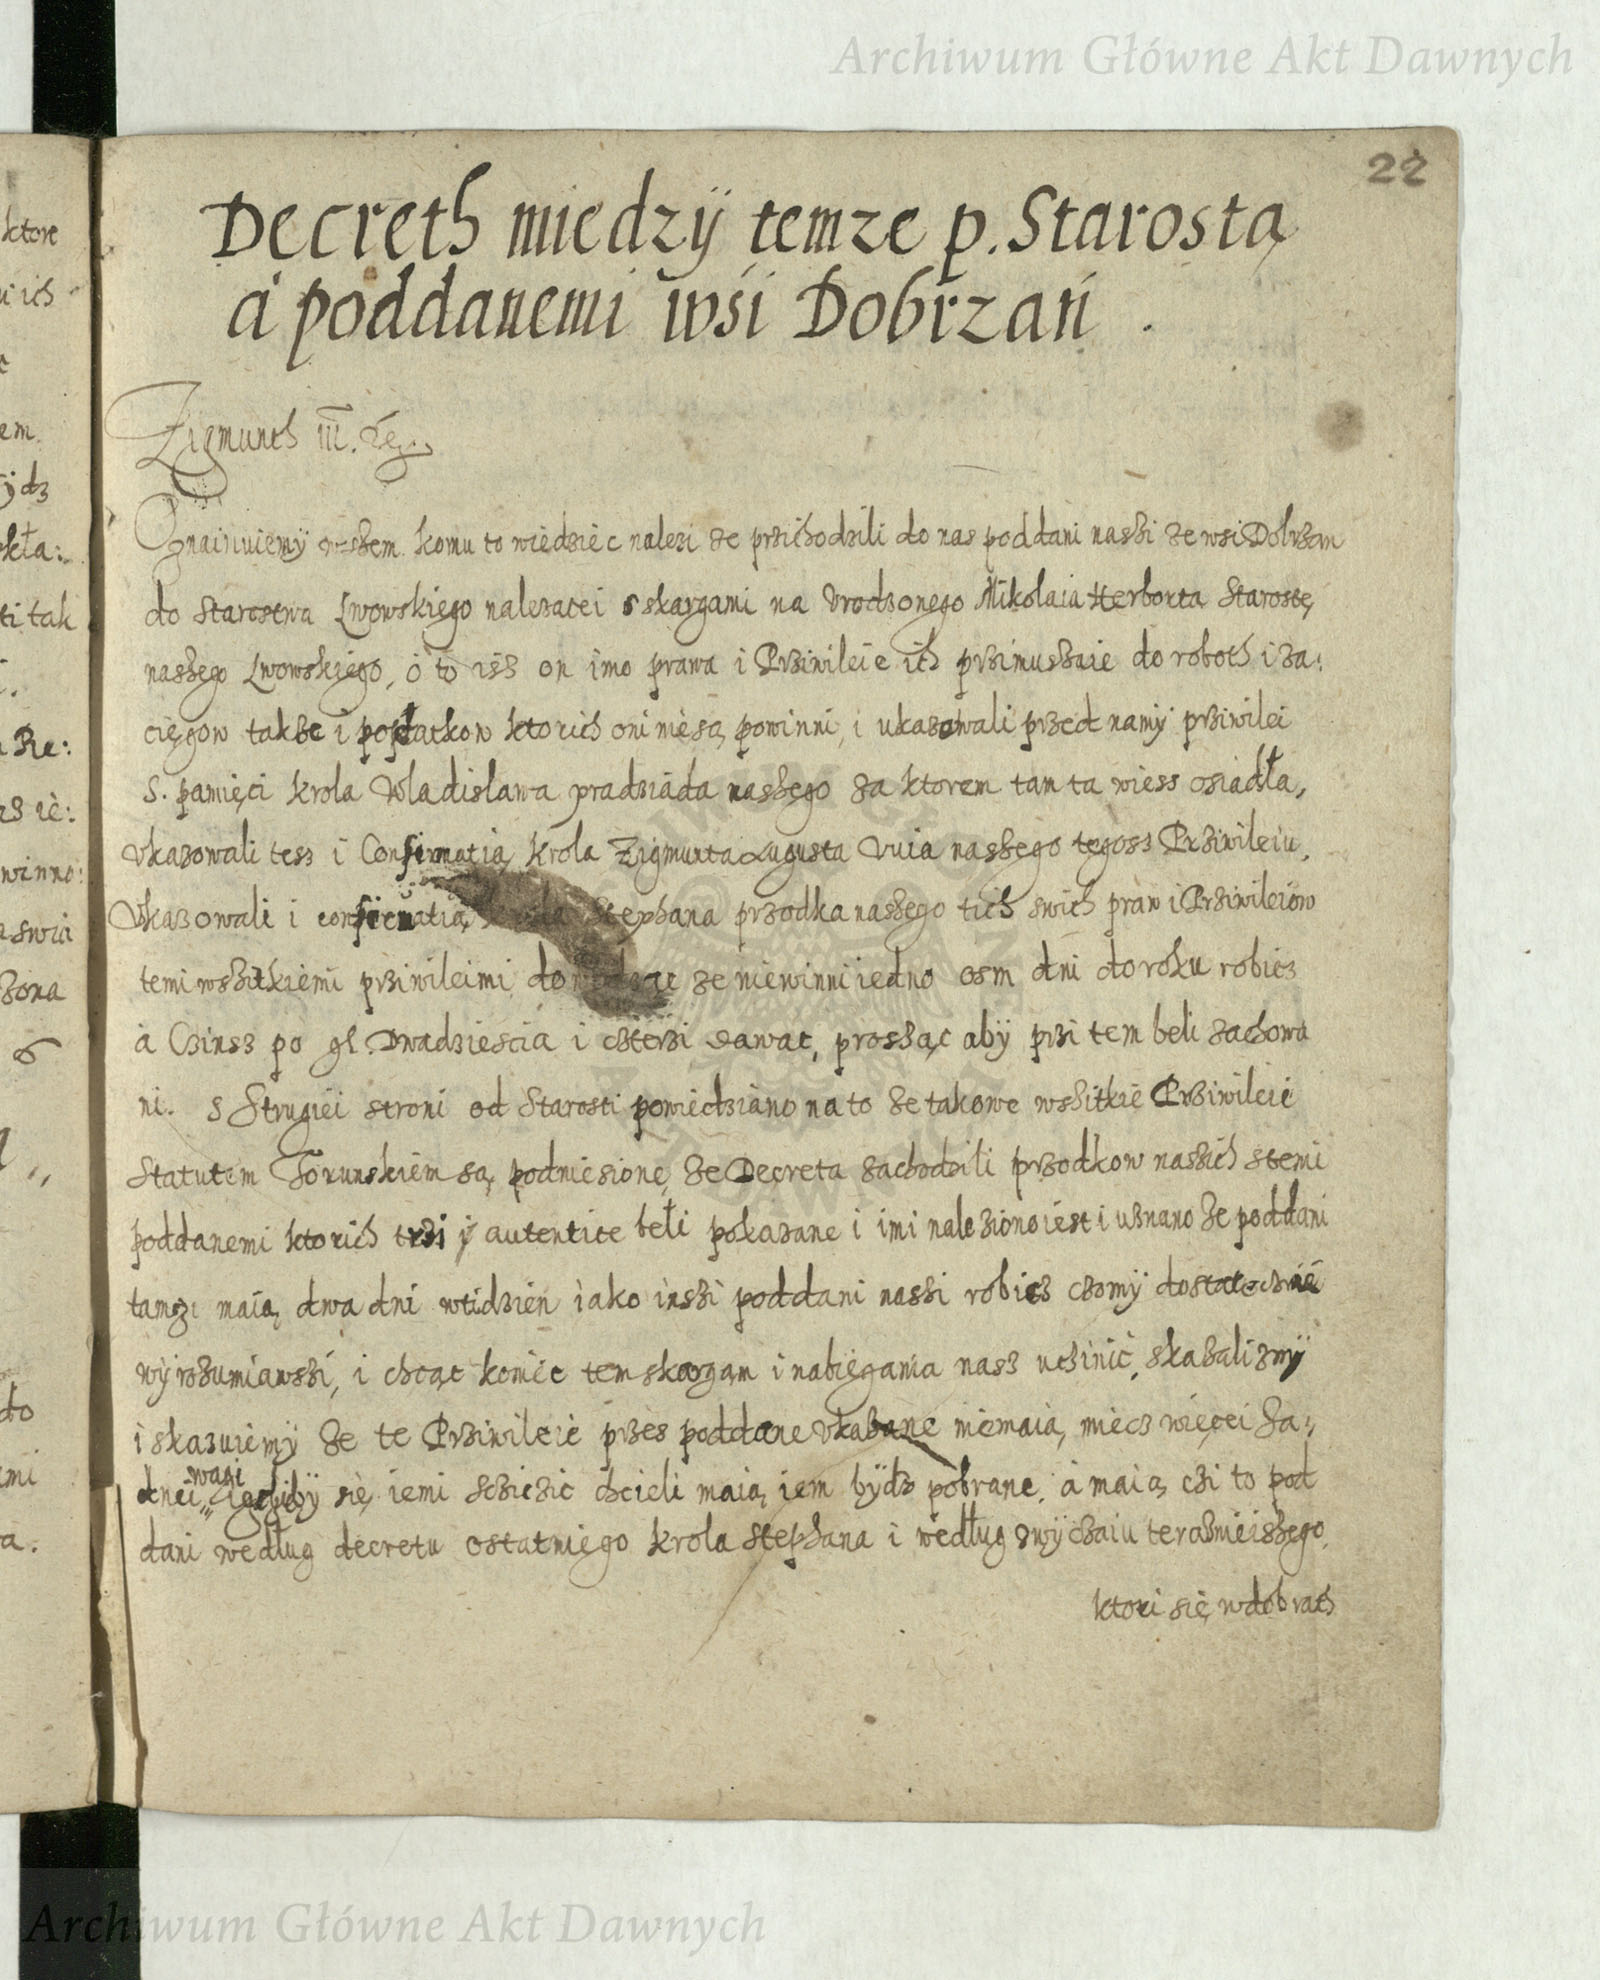 Archiwum Główne Akt Dawnych
22
Decreth miedzÿ temze p. Starostą
a poddanemi wśi Dobrzań.
Zigmunth III.
Oznaimuiemÿ wszem komu to wiedziec nalezi ze przichodzili do nas poddani naszi ze wsi Dobrzan
do Starostwa Lwowskiego nalezacei s skargami na Vrodzonego Mikolaia Herborta Starostę
naszego Lwowskiego, o to isz on imo prawa i Prziwileie ich przimuszaie do roboth i za:
cięgow takze i podatkow ktorich oni niesą powinni, i ukazowali przed namÿ prziwilei
S. pamięci krola Wladislawa pradziada naszego za ktorem tam ta wiess osiadła,
Vkazowali tesz i Confirmatią krola Zigmunta Augusta Vuia naszego tegosz Prziwileiu,
Vkazowali i confirmatią krola Stephana przodka naszego tich swich praw i Prziwileiow
temi wszitkiemi prziwileimi dowodząc ze niewinni iedno osm dni do roku robicz
à Czinsz po gl. Dwadziescia i czterzi dawac, prosząc abÿ przi tem beli zachowa
ni. s Strugiei stroni od Starosti powiedziano na to ze takowe wszitkie Prziwileie
Statutem Torunskiem są podniesione, ze Decreta zachodzili przodkow naszich stemi
poddanemi ktorich trzi autentice bełi pokazane i imi nalezionoiest i uznano ze poddani
tamzi maią dwa dni wtidzień iako inszi poddani naszi robicz czomÿ dostatecznie
wÿrozumiawszi, i chcąc koniec tem skargam i nabiegania nasz uczinić, skazalizmÿ
i skazuiemÿ ze te Prziwileie przes poddane vkazane niemaią miecz więcei za:
dnei wagi iesliby się iemi scziczic chcieli maią iem bÿdz pobrane. à maią czi to pod
dani według decretu ostatniego krola Stephana i według zwÿczaiu teraznieiszego,
ktori się wdobrach
ktore
ich
em.
ÿdz
kła:
ti tak
Re:
winno:
zona
do
Archiwum Główne Akt Dawnych